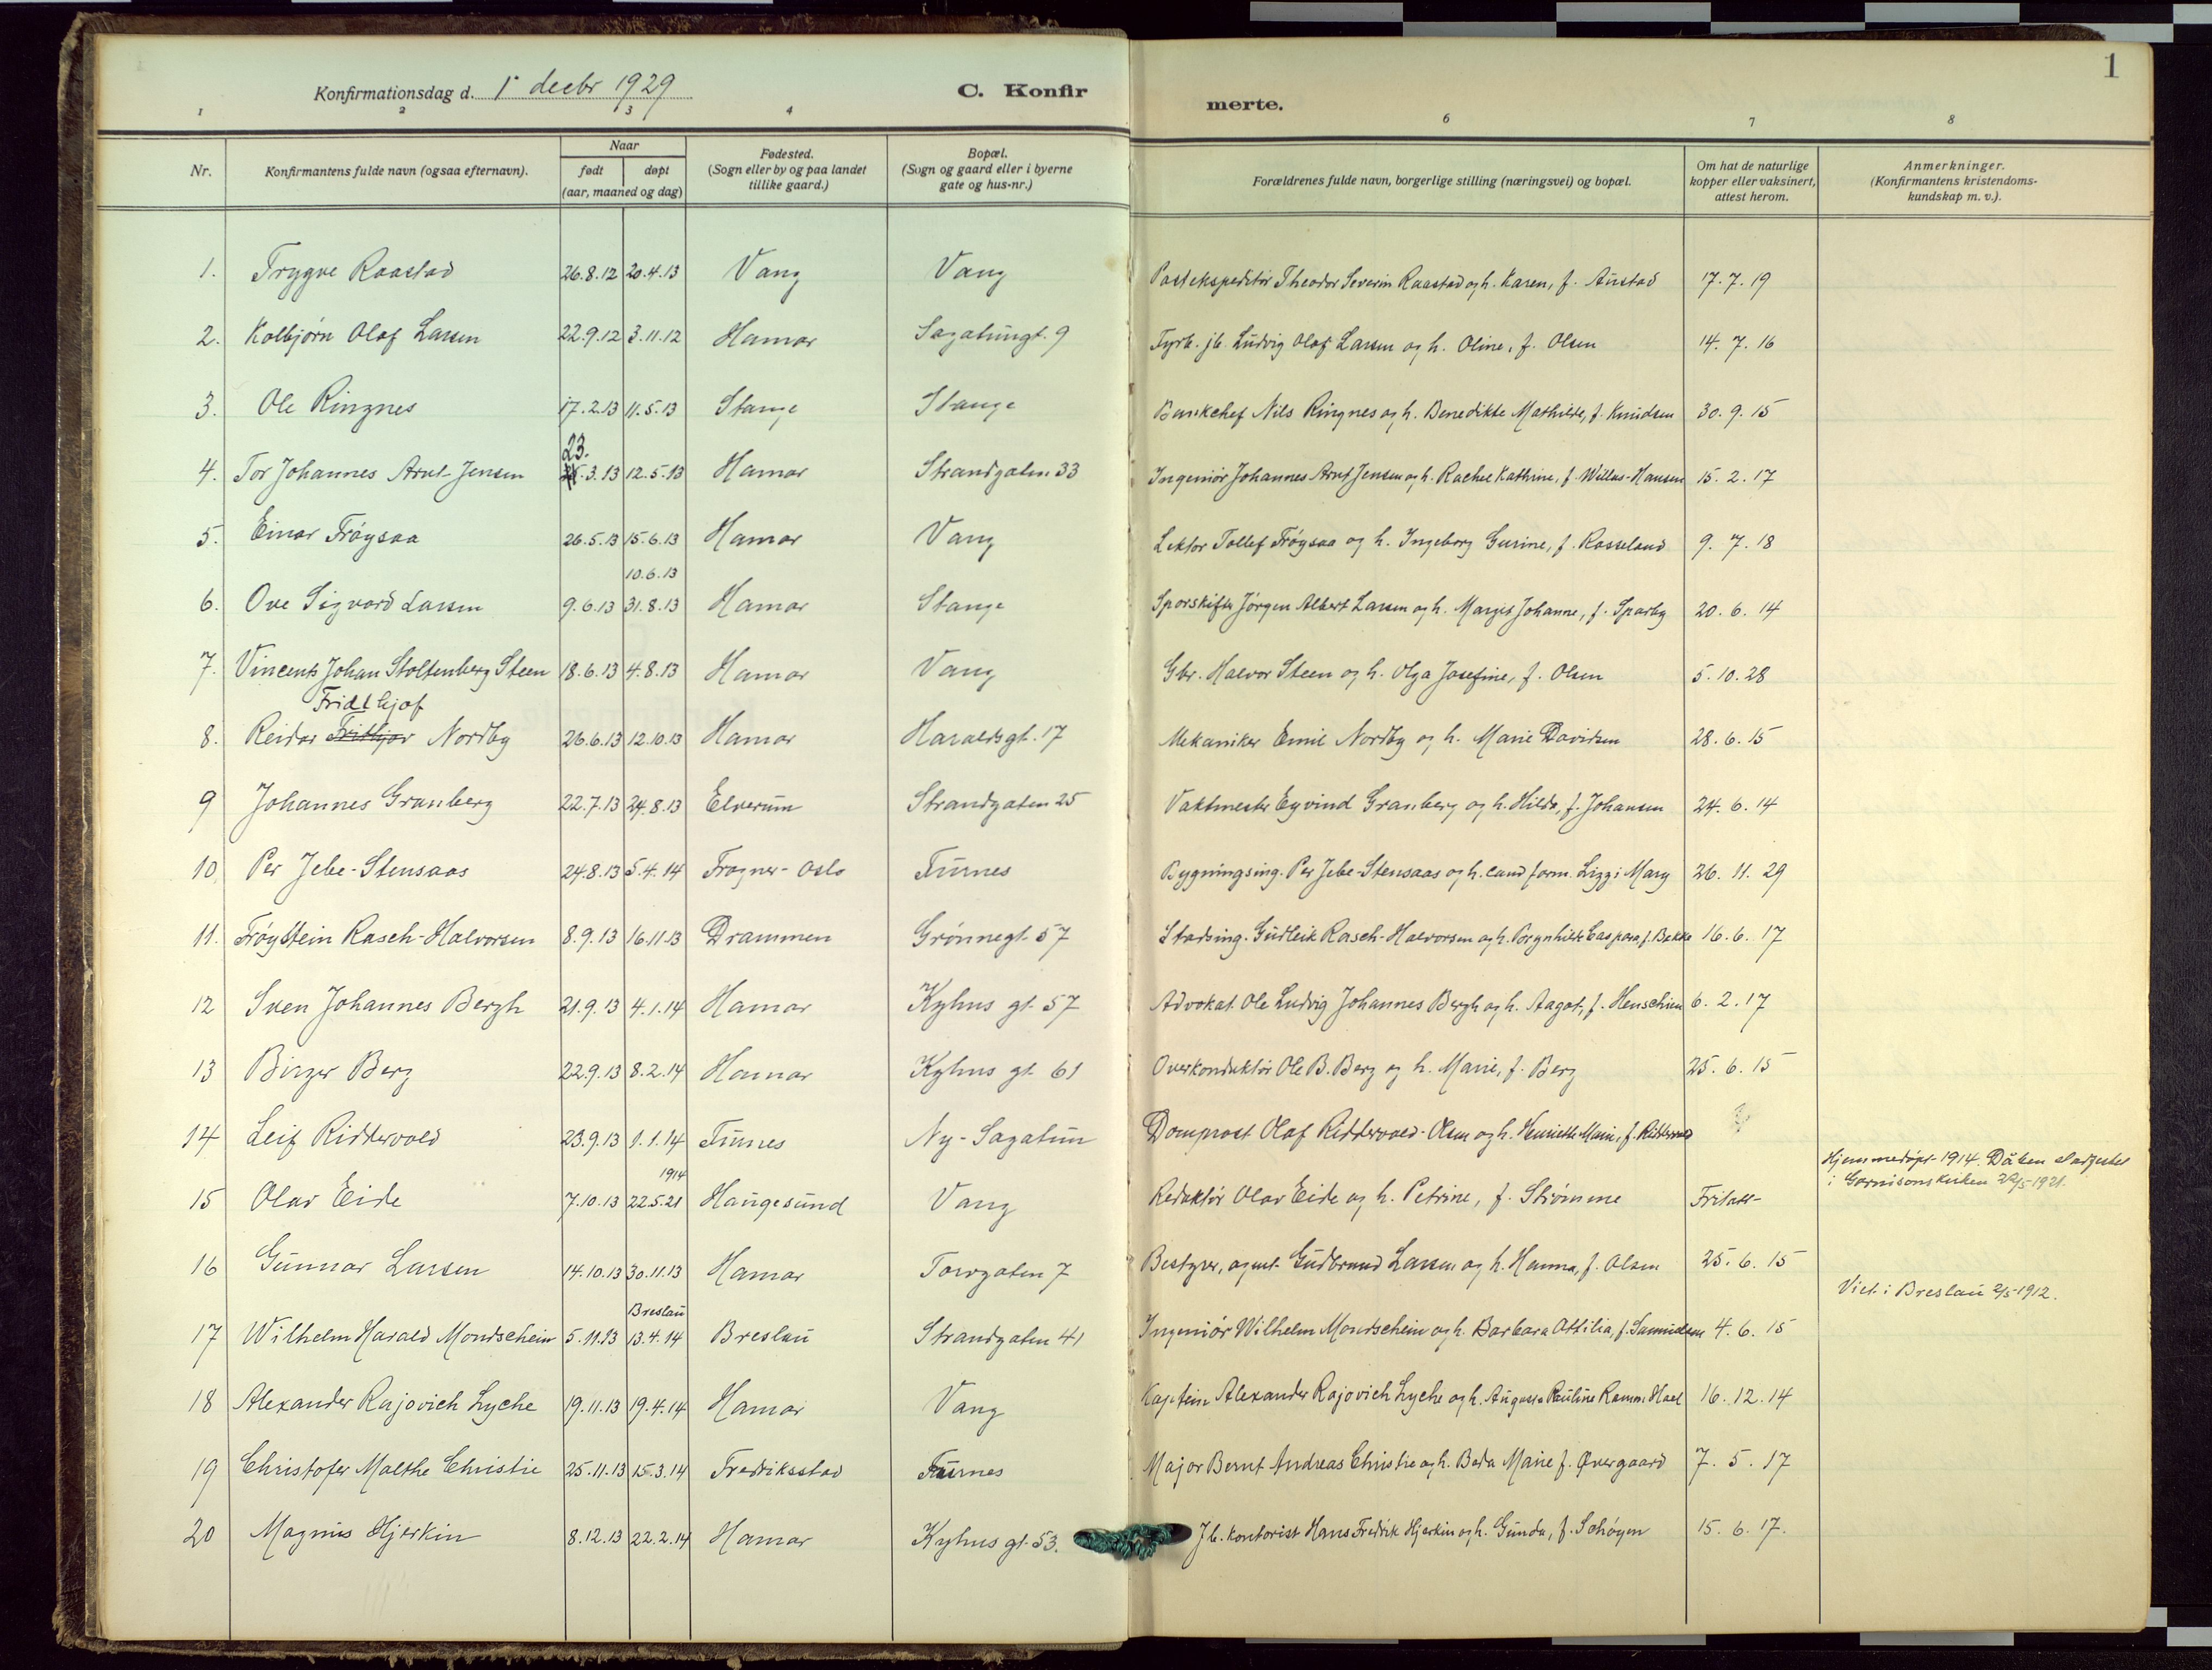 1
Konfirmationsdag d. 1' decbr 1929
C. Konfirmerte.
1 2 3 4 6 7 8
Nr.
Konfirmantens fulde navn (ogsaa efternavn).
Naar
født døpt
(aar, maaned og dag)
Fødested.
(Sogn eller by og paa landet
tillike gaard.)
Bopæl.
(Sogn og gaard eller i byerne
gate og hus-nr.)
Forældrenes fulde navn, borgerlige stilling (næringsvei) og bopæl.
Om hat de naturlige
kopper eller vaksinert,
attest herom.
Anmerkninger.
(Konfirmantens kristendoms-
kundskap m. v.).
1. Trygve Raastad 26.8.12 20.4.13 Vang Vang Postekspeditør Theodor Severin Raastad og h. Karen, f. Austad 17.7.19
2. Kolbjørn Olaf Larsen 22.9.12 3.11.12 Hamar Sagatungt. 9 Fyrb. jb. Ludvig Olaf Larsen og h. Oline, f. Olsen 14.7.16
3. Ole Ringnes 17.2.13 11.5.13 Stange Stange Bankchef Nils Ringnes og h. Benedikte Mathilde, f. Knudsen 30.9.15
23.
4. Tor Johannes Arnt-Jensen .3.13 12.5.13 Hamar Strandgaten 33 Ingeniør Johannes Arnt Jensen og h. Rachel Kathrine, f. Willas-Hansen 15.2.17
5. Einar Frøysaa 26.5.13 15.6.13 Hamar Vang Lektor Tollef Frøysaa og h. Ingeborg Gurine, f. Rosseland 9.7.18
10.6.13
6. Ove Sigvard Larsen 9.6.13 31.8.13 Hamar Stange Sporskifter Jørgen Albert Larsen og h. Margit Johanne, f. Sparby 20.6.14
7. Vincents Johan Stoltenberg Steen 18.6.13 4.8.13 Hamar Vang Gbr. Halvor Steen og h. Olga Josefine, f. Olsen 5.10.28
Fridthjof
8. Reidar Frithjov Nordby 26.6.13 12.10.13 Hamar Haraldsgt. 17 Mekaniker Emil Nordby og h. Marie Davidsen 28.6.15
9 Johannes Granberg 22.7.13 24.8.13 Elverum Strandgaten 25 Vaktmester Eyvind Granberg og h. Hilda, f. Johansen 24.6.14
10 Per Jebe-Stensaas 24.8.13 5.4.14 Frogner-Oslo Furnes Bygningsing. Per Jebe-Stensaas og h. cand farm. Lizzi Mary 26.11.29
11. Frøystein Rasch-Halvorsen 8.9.13 16.11.13 Drammen Grønnegt. 57 Stadsing. Gudleik Rasch-Halvorsen og h. Borgnhild Caspara, f. Bakke 16.6.17
12 Sven Johannes Bergh 21.9.13 4.1.14 Hamar Kyhus gt. 57 Advokat Ole Ludvig Johannes Bergh og h. Aagot, f. Henschien 6.2.17
13 Birger Berg 22.9.13 8.2.14 Hamar Kyhus gt. 61 Overkonduktør Ole B. Berg og h. Marie, f. Berg 25.6.15
14 Leif Riddervold 23.9.13 1.1.14 Furnes Ny-Sagatun Domprost Olaf Riddervold-Olsen og h. Henriette Marie, f. Riddervold
1914
Hjemmedøpt 1914. Dåben stadfestet
i Garnisonskirken 22/5 1921.
15 Olav Eide 7.10.13 22.5.21 Haugesund Vang Redaktør Olav Eide og h. Petrine, f. Strømme Fritatt
16 Gunnar Larsen 14.10.13 30.11.13 Hamar Torvgaten 7 Bestyrer, agent Gudbrand Larsen og h. Hanna, f. Olsen 25.6.15
Breslau
Viet i Breslau 2/5 1912.
17 Wilhelm Harald Mondschein 5.11.13 13.4.14 Breslau Strandgaten 41 Ingeniør Wilhelm Mondschein og h. Barbara Ottilia, f. Samuelsen 4.6.15
18 Alexander Rajovich Lyche 19.11.13 19.4.14 Hamar Vang Kaptein Alexander Rajovich Lyche og h. Augusta Pauline Ramm Hoel 16.12.14
19 Christofer Malthe Christie 25.11.13 15.3.14 Fredriksstad Furnes Major Bernt Andreas Christie og h. Beda Marie f. Øvergaard 7.5.17
20 Magnus Hjerkin 8.12.13 22.2.14 Hamar Kyhus gt. 53. Jb. kontorist Hans Fredrik Hjerkin og h. Gunda, f. Schøyen 15.6.17.